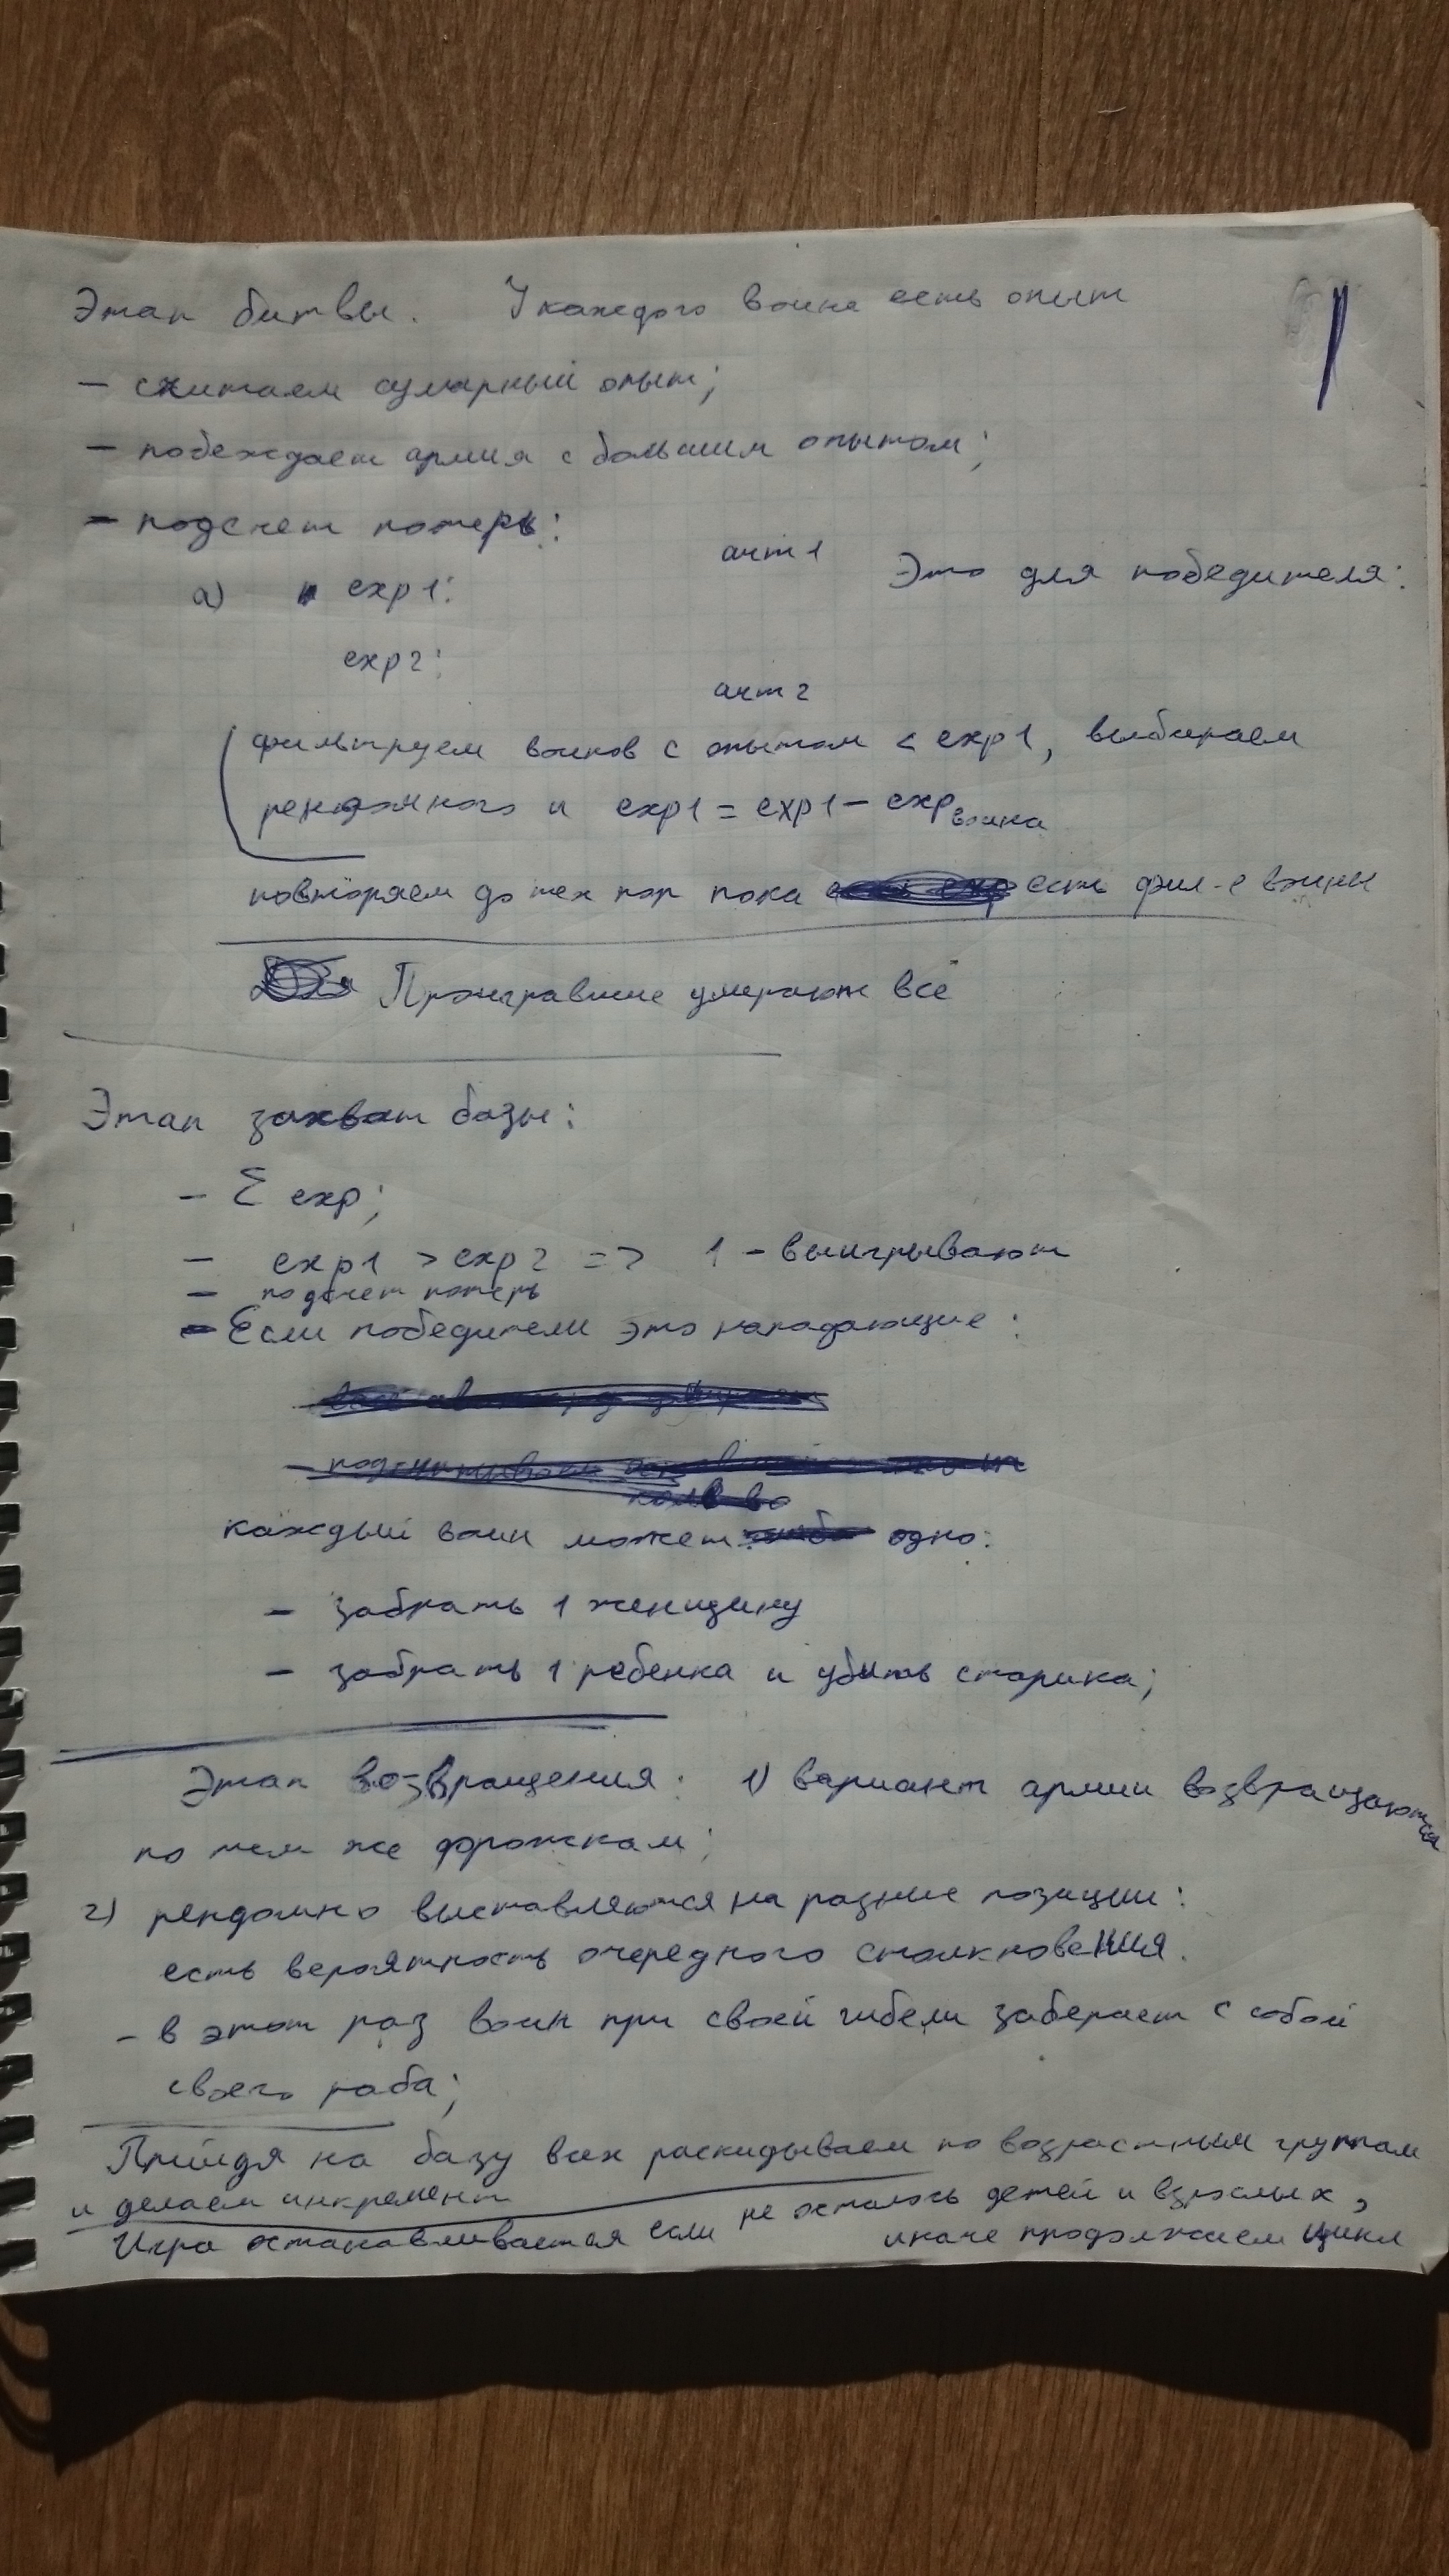 Этап битвы. У каждого воина есть опыт
– считаем сумарный опыт;
– побеждает армия с большим опытом;
– подсчет потерь:
Это для победителя:
а) exp1:
exp2:
фильтруем воинов с опытом < exp1, выбираем
рендомного и exp1 = exp1 – exp воина
повторяем до тех пор пока есть фил-е воины
Проигравшие умерают все
Этап захват базы:
– Σ exp;
– exp1 > exp2 => 1 – выигрывают
– подсчет потерь
– Если победители это нападающие:
каждый воин может одно:
– забрать 1 женщину
– забрать 1 ребенка и убить старика;
Этап возвращения: 1) вариант армии возвращаются
по тем же дрожкам;
2) рендомно выставляются на разные позиции:
есть вероятность очередного столкновения.
– в этот раз воин при своей гибели заберает с собой
своего раба;
Прийдя на базу всех раскидываем по возрастным группам
и делаем инкремент
Игра останавливается если не осталось детей и взрослых,
иначе продолжаем цикл